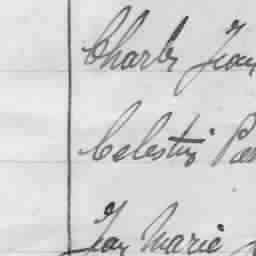 Charles Jean
Célestin
Jean Marie